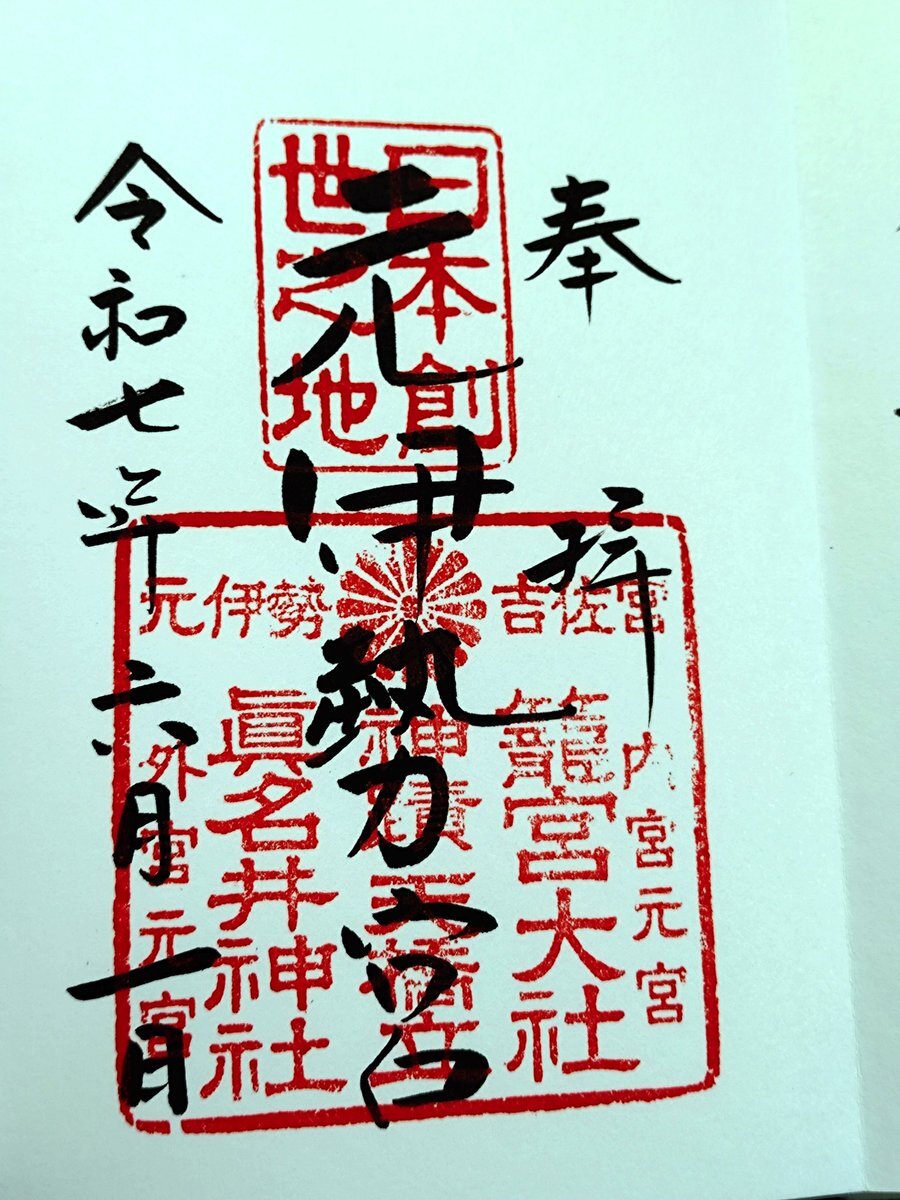 奉拝
元伊勢宮
令和七年六月一日
日本創
世之地
元伊勢 吉佐宮
内宮元宮
籠宮大社
神蹟天橋立
眞名井神社
外宮元宮